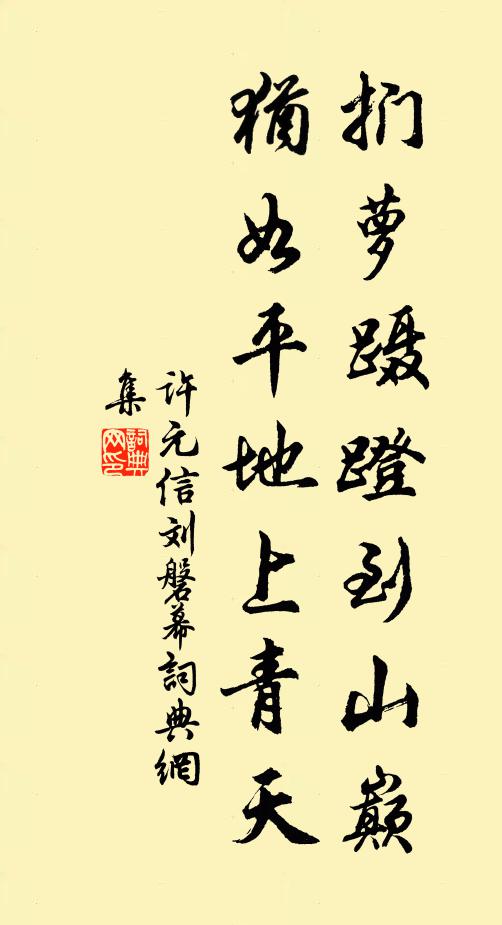 扪萝蹑蹬到山巅
犹如平地上青天
许元信刘磐幕詞典網
集
詞典
网印